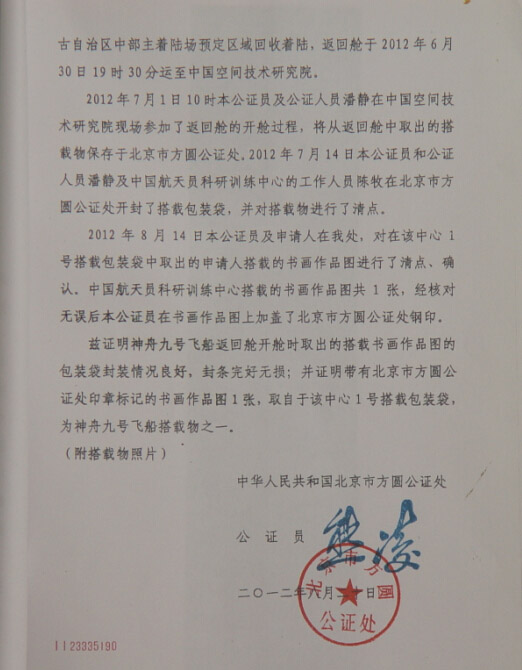 古自治区中部主着陆场预定区域回收着陆，返回舱于 2012 年 6 月
30 日 19 时 30 分运至中国空间技术研究院。
2012 年 7 月 1 日 10 时本公证员及公证人员潘静在中国空间技
术研究院现场参加了返回舱的开舱过程，将从返回舱中取出的搭
载物保存于北京市方圆公证处。2012 年 7 月 14 日本公证员和公证
人员潘静及中国航天员科研训练中心的工作人员陈牧在北京市方
圆公证处开封了搭载包装袋，并对搭载物进行了清点。
2012 年 8 月 14 日本公证员及申请人在我处，对在该中心 1
号搭载包装袋中取出的申请人搭载的书画作品图进行了清点、确
认。中国航天员科研训练中心搭载的书画作品图共 1 张，经核对
无误后本公证员在书画作品图上加盖了北京市方圆公证处钢印。
兹证明神舟九号飞船返回舱开舱时取出的搭载书画作品图的
包装袋封装情况良好，封条完好无损；并证明带有北京市方圆公
证处印章标记的书画作品图 1 张，取自于该中心 1 号搭载包装袋，
为神舟九号飞船搭载物之一。
（附搭载物照片）
中华人民共和国北京市方圆公证处
公 证 员
二〇一二年八月二十日
北京市方圆
公证处
11 23335190